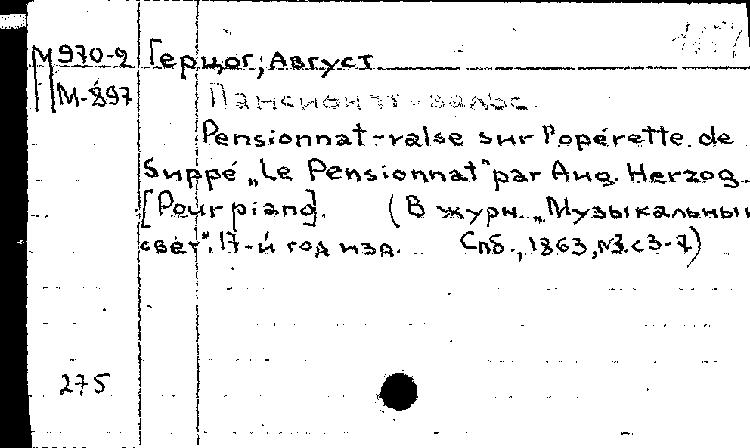 М970-2 Герцог, Август
М-897 Пансионат-вальс.
Pensionnat-valse sur l'opérette de
Suppé „Le Pensionnat" par Aug. Herzog.
[Pour piano]. (В журн. „Музыкальный
свет". 17-й год изд. Спб., 1863, №3. с 3-7)
275